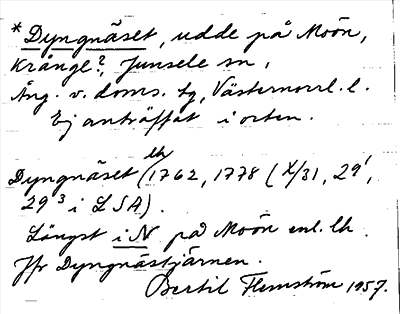 * Dyngnäset, udde på Moön,
Krånge?, Junsele sn,
Ång. v. doms. tg, Västernorrl. l.
Ej anträffat i orten.
Dyngnäset lk 1762, 1778 (X/31, 29¹,
29³ i LSA).
Längst i N på Moön enl. lk.
Jfr Dyngnästjärnen.
Bertil Flemström 1957.